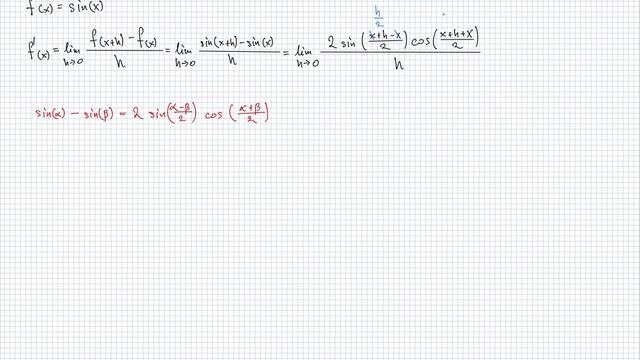 f(x) = sin(x)
h/2
f'(x) = lim h→0 (f(x+h) - f(x))/h = lim h→0 (sin(x+h) - sin(x))/h = lim h→0 (2 sin((x+h-x)/2) cos((x+h+x)/2))/h
sin(α) - sin(β) = 2 sin((α-β)/2) cos((α+β)/2)